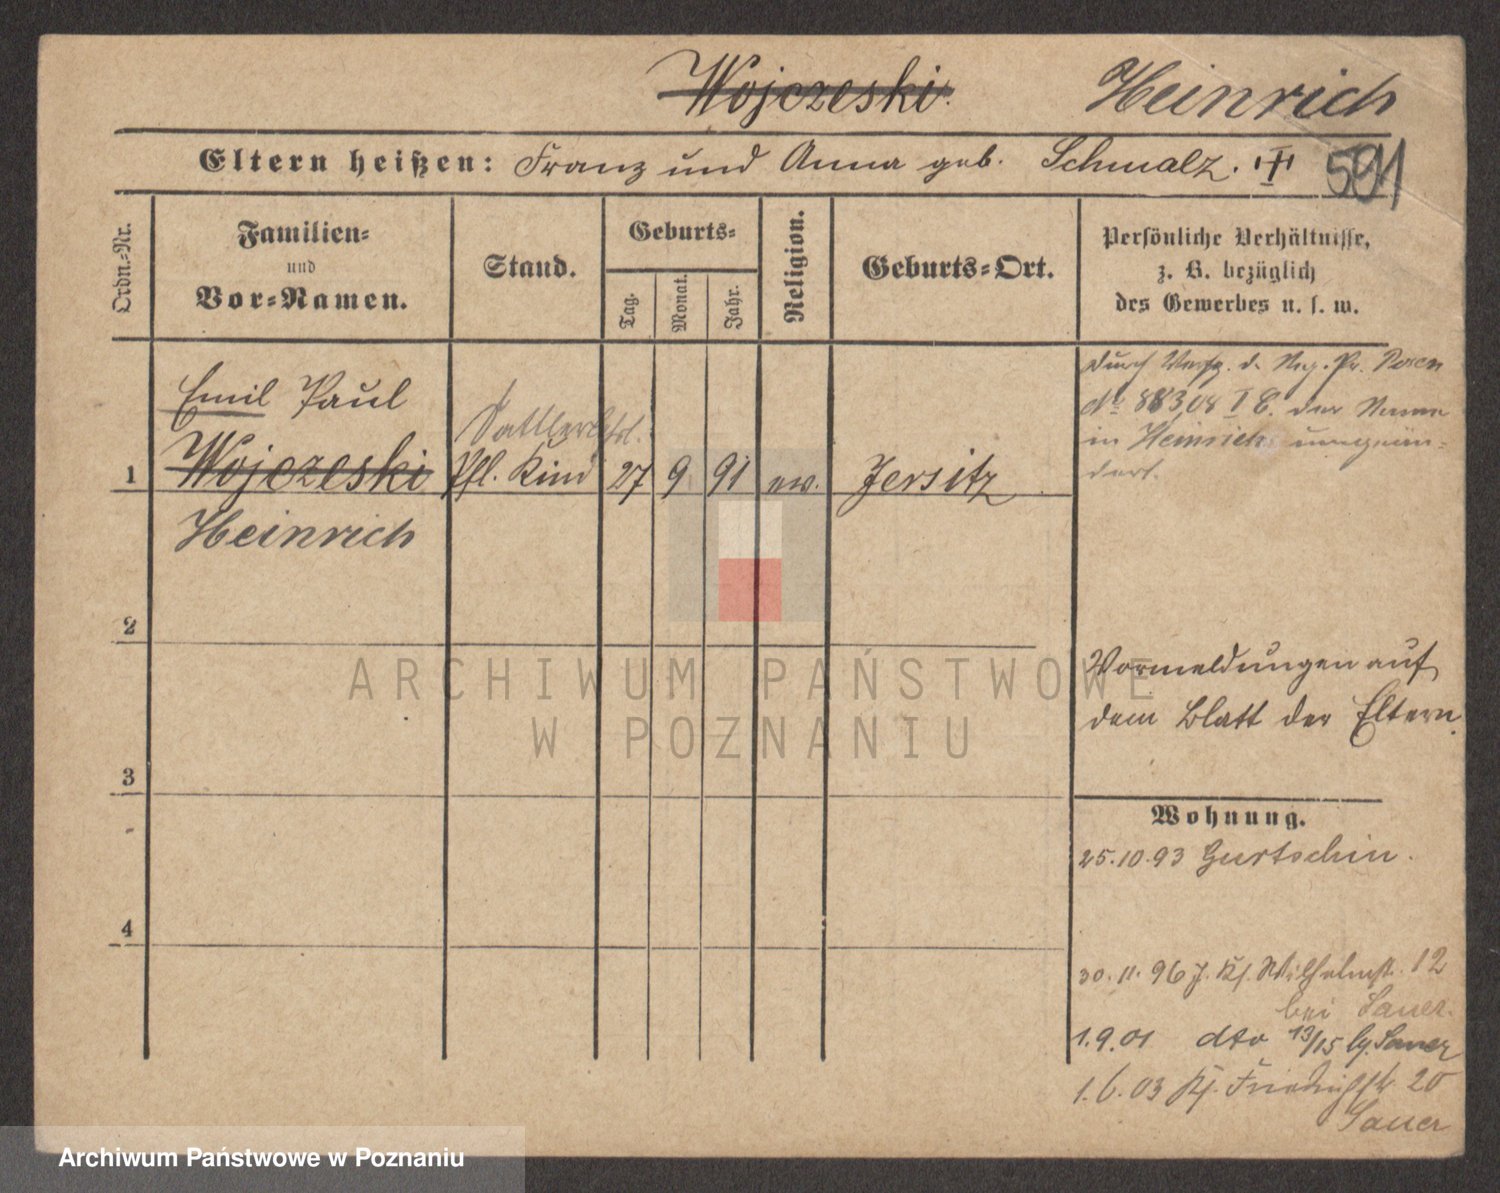 Wojczeski. Heinrich
Eltern heißen: Franz und Anna geb. Schmalz. 591
Ordn.-Nr.
Familien-
und
Vor-Namen.
Stand.
Geburts-
Tag.
Monat.
Jahr.
Religion.
Geburts-Ort.
Persönliche Verhältnisse,
z. B. bezüglich
des Gewerbes u. s. w.
Emil Paul
1 Wojczeski Pfl. Kind 27 9 91 ev. Jersitz
Heinrich
durch Verfg. d. Reg. Pr. Posen
No 883/08 I E. der Name
in Heinrich umgeän-
dert.
2
Vormeldungen auf
dem Blatt der Eltern.
3
Wohnung.
25.10.93 Gurtschin.
4
30.11.96 J. Kf. Wilhelmst. 12
bei Sauer.
1.9.01 dto 13/15 Sauer
1.6.03 Kf. Friedrichstr 20
Sauer
ARCHIWUM PAŃSTWOWE
W POZNANIU
Archiwum Państwowe w Poznaniu